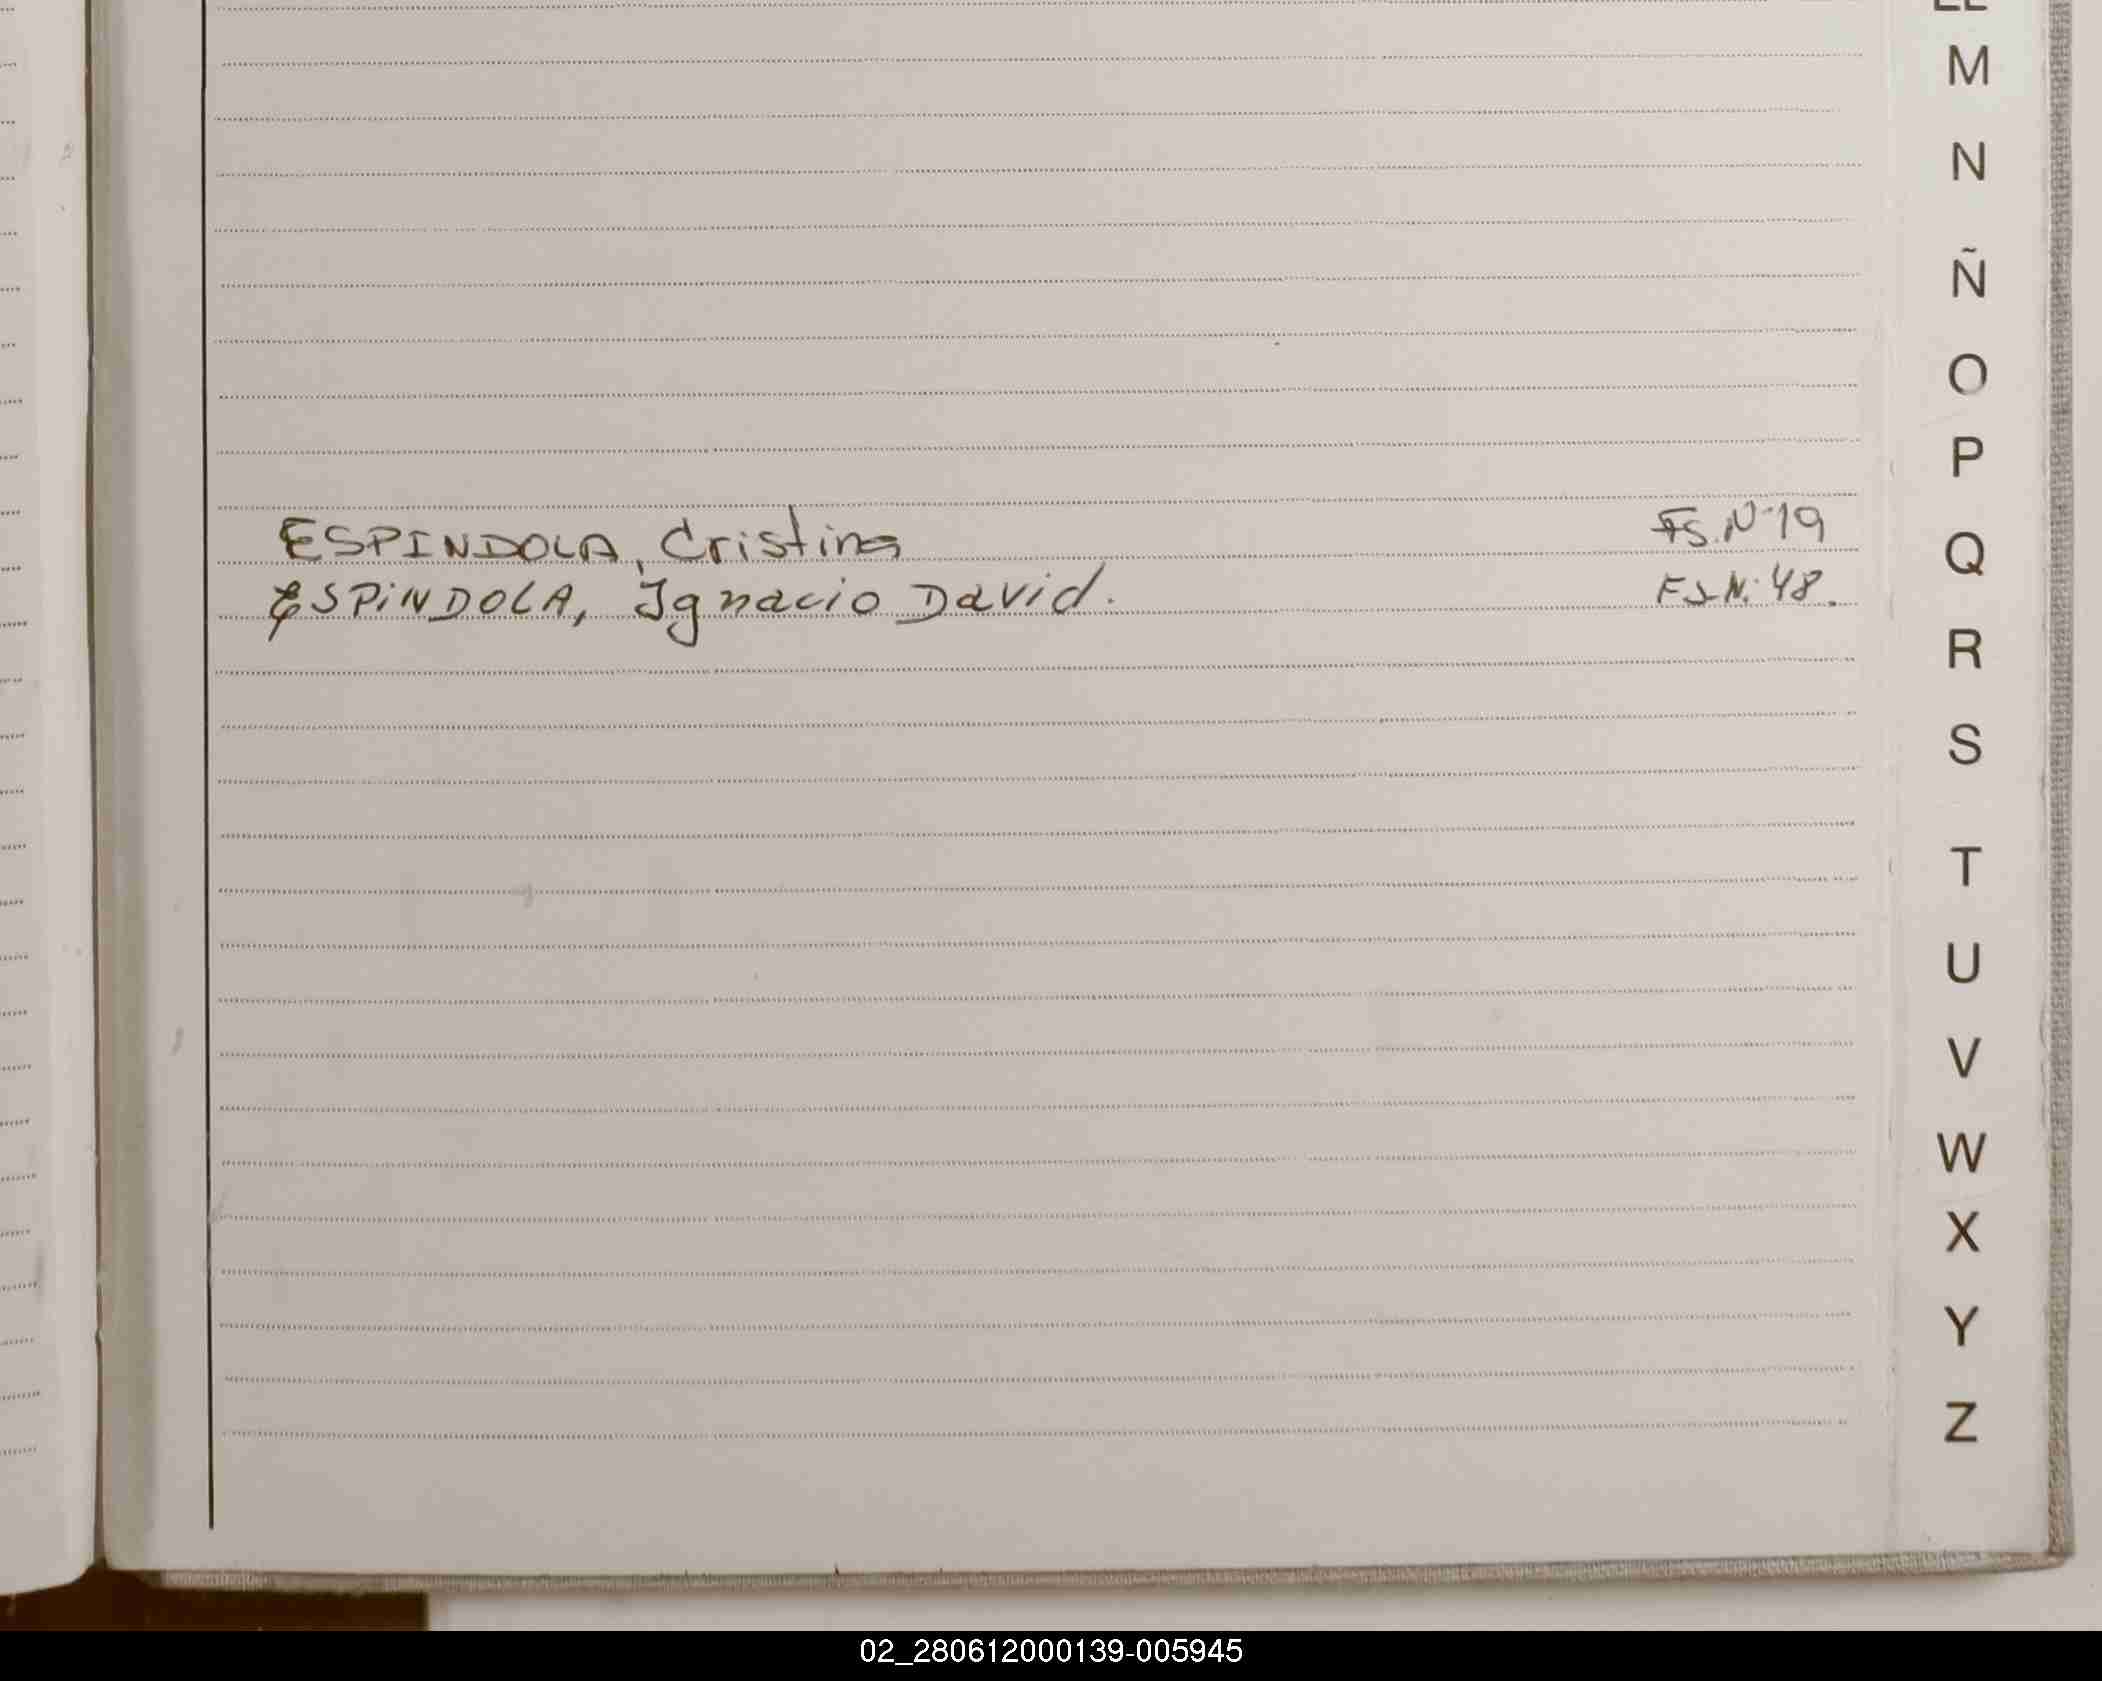 ESPINDOLA, Cristina FS. Nº 19
ESPINDOLA, Ignacio David. FS. Nº 48.
M
N
Ñ
O
P
Q
R
S
T
U
V
W
X
Y
Z
02_280612000139-005945